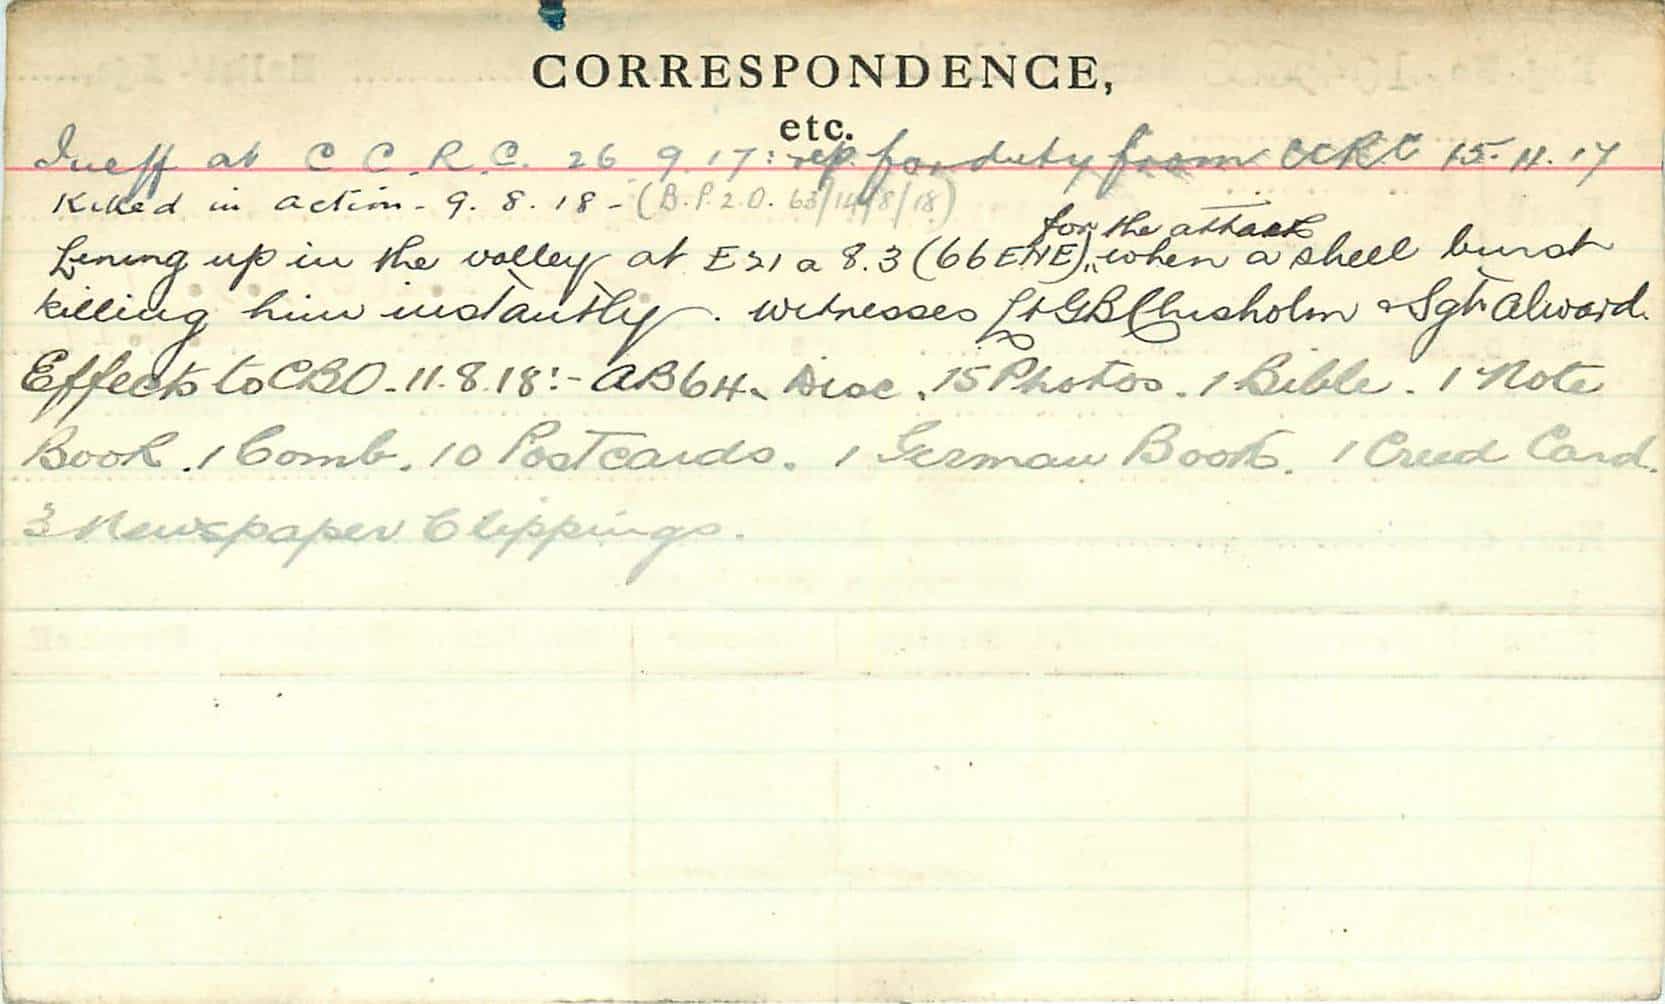 CORRESPONDENCE,
etc.
Ineff at C C. R. C. 26 9. 17: rep. for duty from CCRC 15. 11. 17
Killed in action - 9. 8. 18 - (B.P.2.O. 63/14/8/18)
for the attack
Lining up in the valley at E21 a 8.3 (66ENE), when a shell burst
killing him instantly. Witnesses Lt GB Chisholm & Sgt Alward.
Effects to CBO. 11.8.18:- AB64. Disc. 15 Photos. 1 Bible. 1 Note
Book. 1 Comb. 10 Postcards. 1 German Book. 1 Creed Card.
3 Newspaper Clippings.